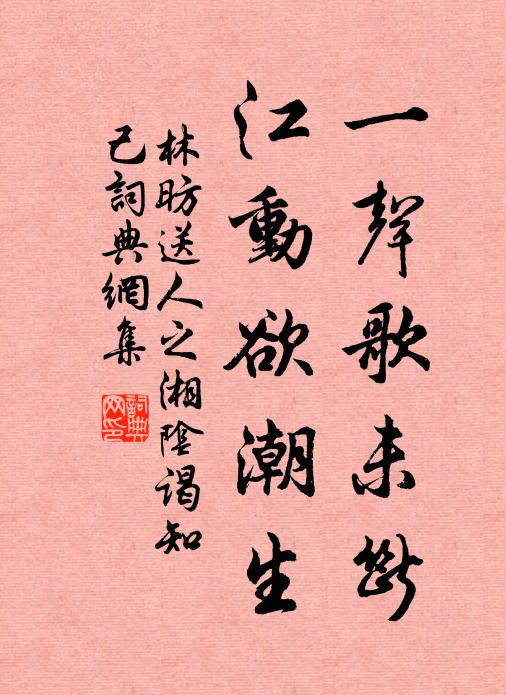 一聲歌未斷
江動欲潮生
林昉送人之湘陰謁知
己詞典網集
詞典
网印